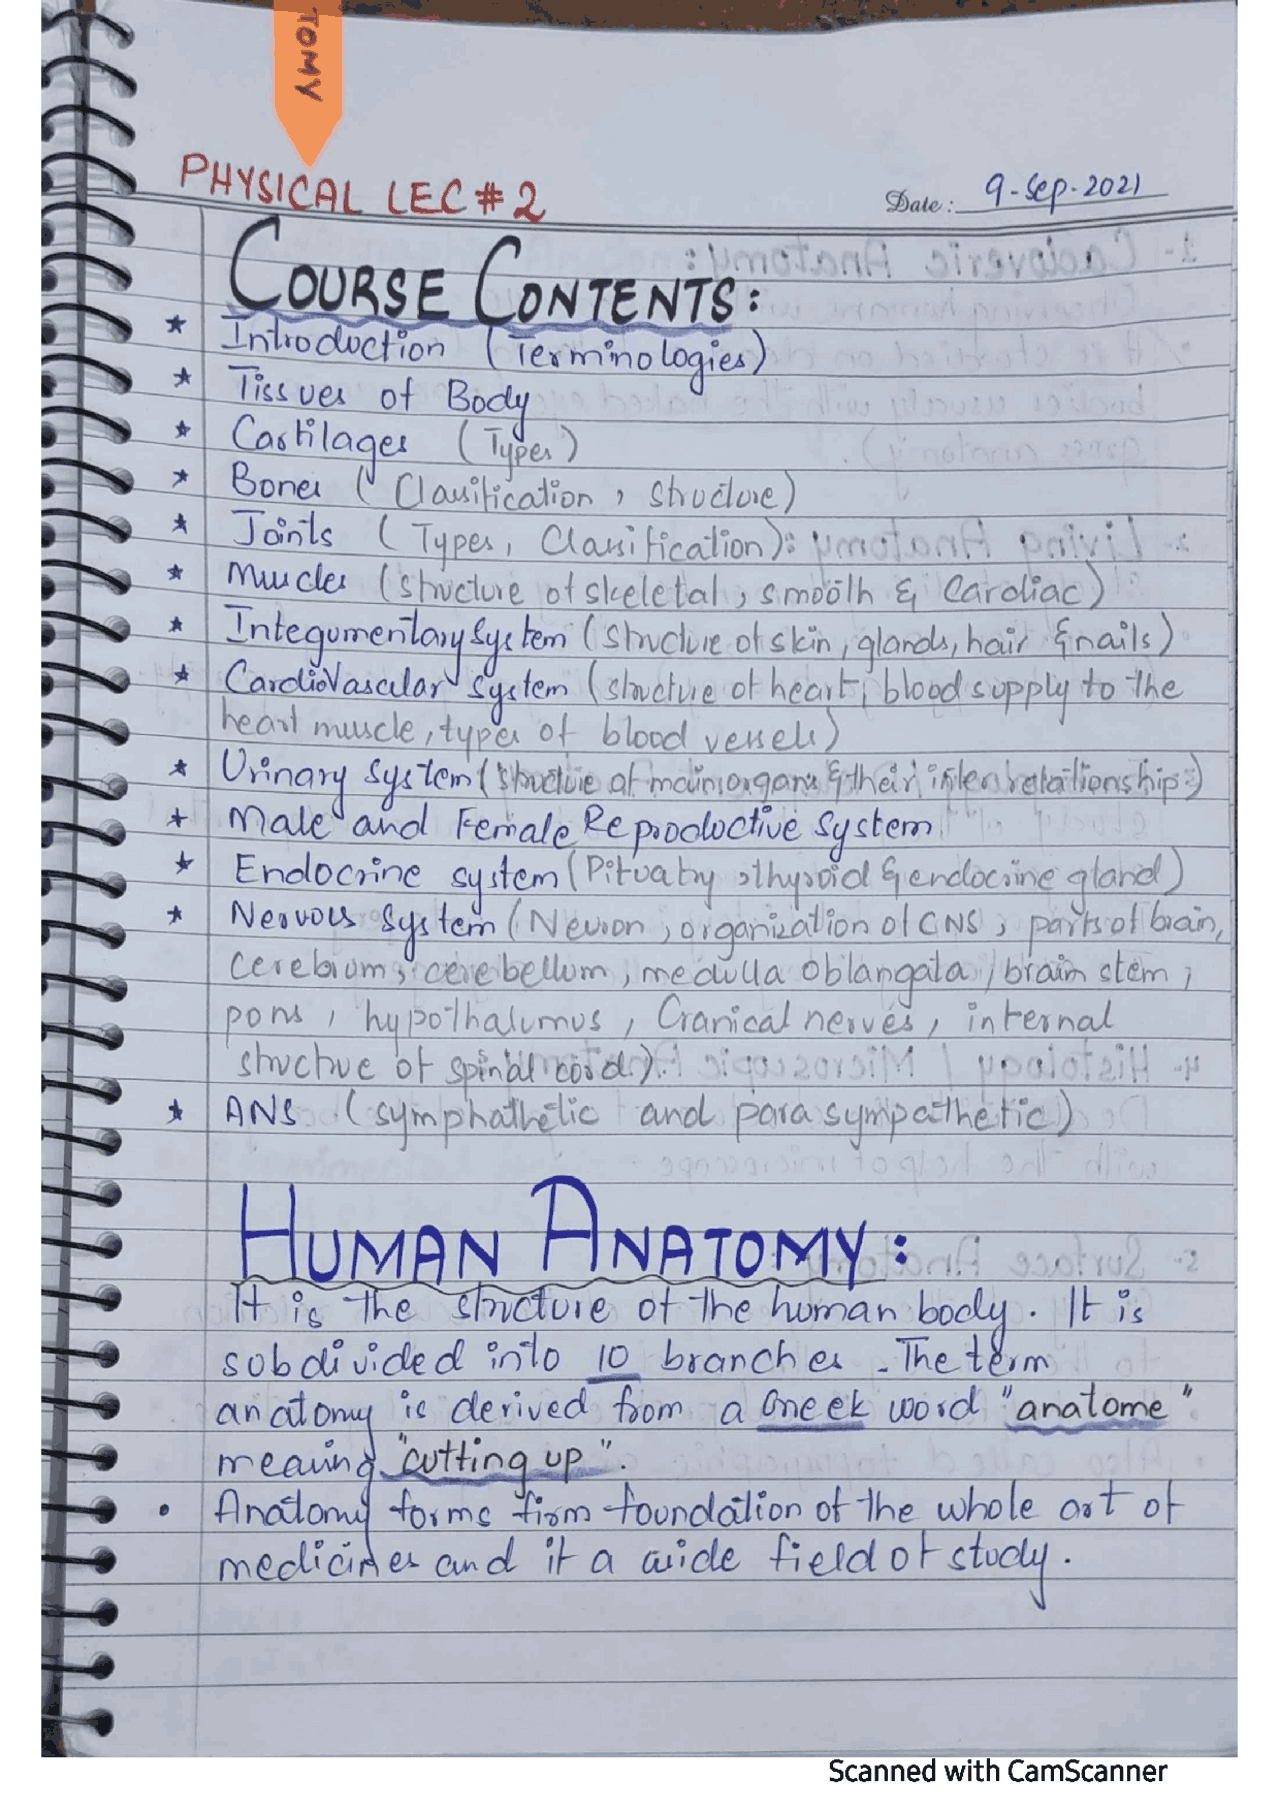 TOMY
PHYSICAL LEC # 2
Date: 9-Sep-2021
COURSE CONTENTS:
* Introduction (Terminologies)
* Tissues of Body
* Cartilages (Types)
* Bones (Classification, structure)
* Joints (Types, Classification):
* Muscles (structure of skeletal, smooth & Cardiac)
* Integumentary System (structure of skin, glands, hair & nails)
* CardioVascular System (structure of heart, blood supply to the
heart muscle, types of blood vessels)
* Urinary System (structure of main organs & their inter relationship)
* Male and Female Reproductive System
* Endocrine system (Pituatry, thyroid & endocrine gland)
* Nervous System (Neuron, organization of CNS, parts of brain,
Cerebrum, cerebellum, medulla Oblangata, brain stem,
pons, hypothalumus, Cranical nerves, internal
structure of spinal cord).
* ANS (symphathetic and parasympathetic)
HUMAN ANATOMY:
It is the structure of the human body. It is
subdivided into 10 branches. The term
anatomy is derived from a Greek word "anatome"
meaning "cutting up".
• Anatomy forms firm foundation of the whole art of
medicines and it a wide field of study.
Scanned with CamScanner